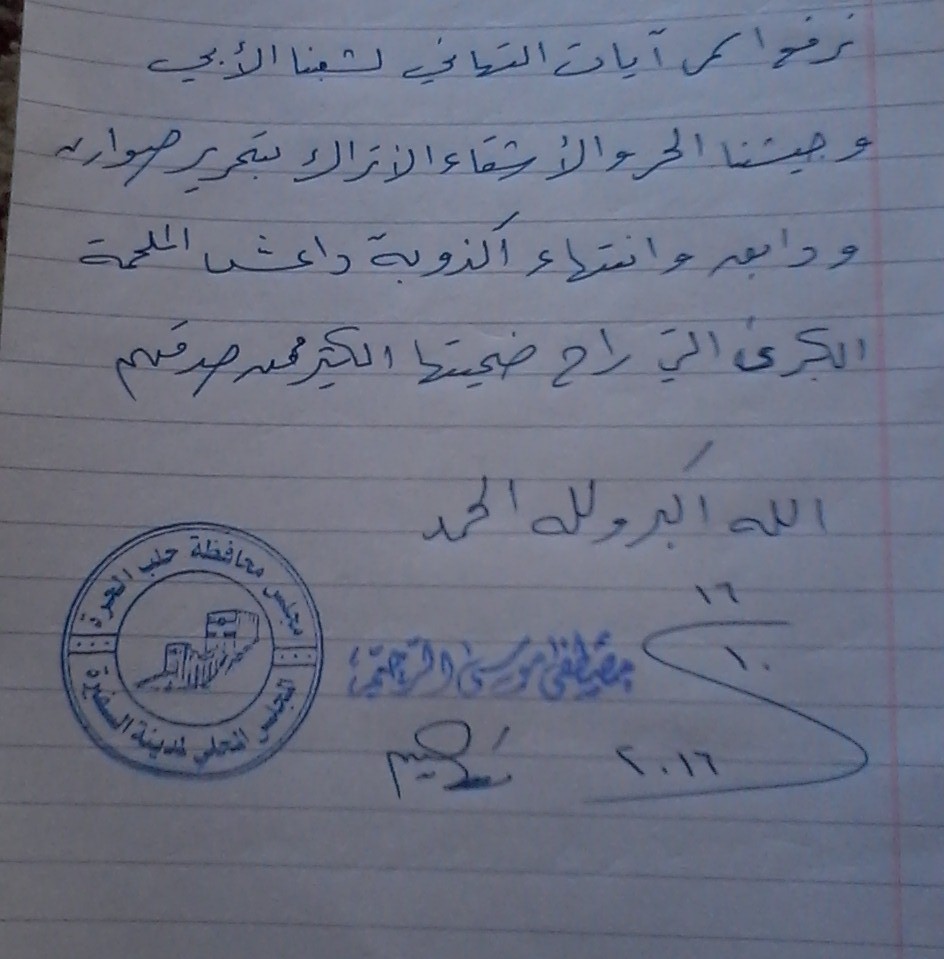 نرفع اسمى آيات التهاني لشعبنا الأبي
وجيشنا الحر والأشقاء الأتراك بتحرير صوران
ودابق وانتهاء أكذوبة داعش الملحمة
الكبرى التي راح ضحيتها الكثير ممن صدقهم
الله أكبر ولله الحمد
١٦
١٠
٢٠١٦
مصطفى موسى
مجلس محافظة حلب الحرة
المجلس المحلي لمدينة السفيرة